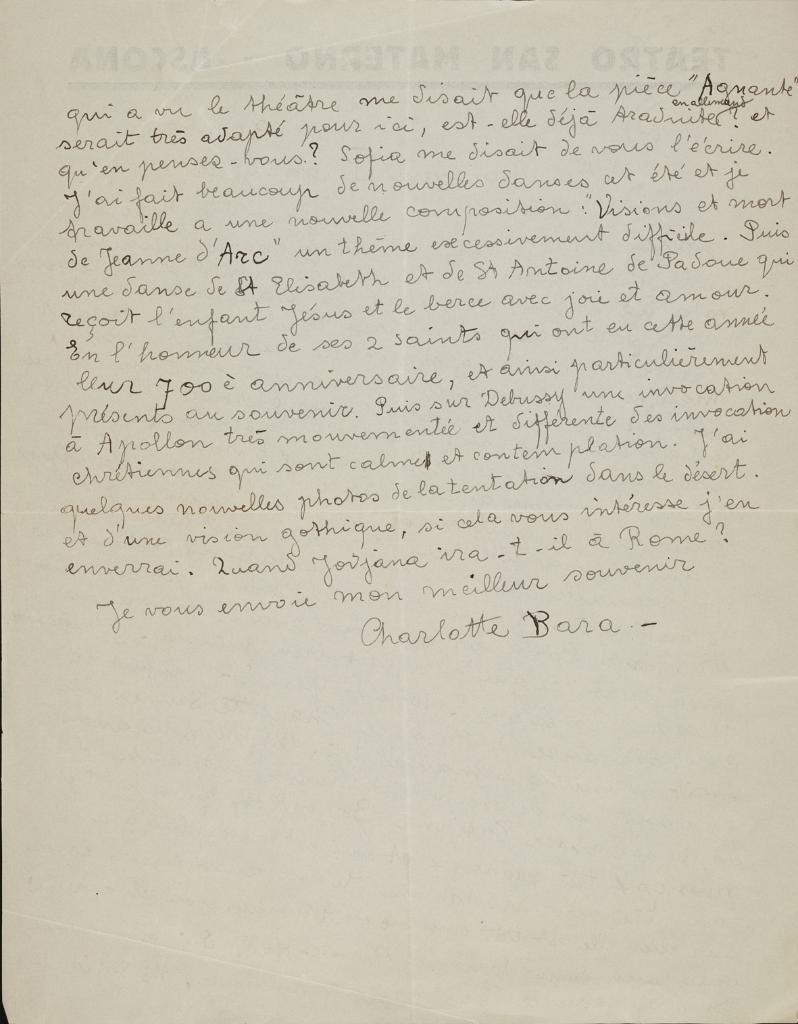 TEATRO SAN MATERNO - ASCONA
qui a vu le théâtre me disait que la pièce "Aguante"
en allemand
serait très adapté pour ici, est-elle déjà traduite? et
qu'en pensez-vous? Sofia me disait de vous l'écrire.
J'ai fait beaucoup de nouvelles danses cet été et je
travaille a une nouvelle composition: "Visions et mort
de Jeanne d'Arc" un thême excessivement difficile. Puis
une danse de St Elisabeth et de St Antoine de Padoue qui
reçoit l'enfant Jésus et le berce avec joie et amour.
En l'honneur de ses 2 saints qui ont eu cette année
leur 700è anniversaire, et ainsi particulièrement
présents au souvenir. Puis sur Debussy une invocation
à Apollon très mouvementée et différente des invocation
chrétiennes qui sont calmes et contemplation. J'ai
quelques nouvelles photos de la tentation dans le désert.
et d'une vision gothique, si cela vous intéresse j'en
enverrai. Quand Jorjana ira-t-il à Rome?
Je vous envoie mon meilleur souvenir
Charlotte Bara.-